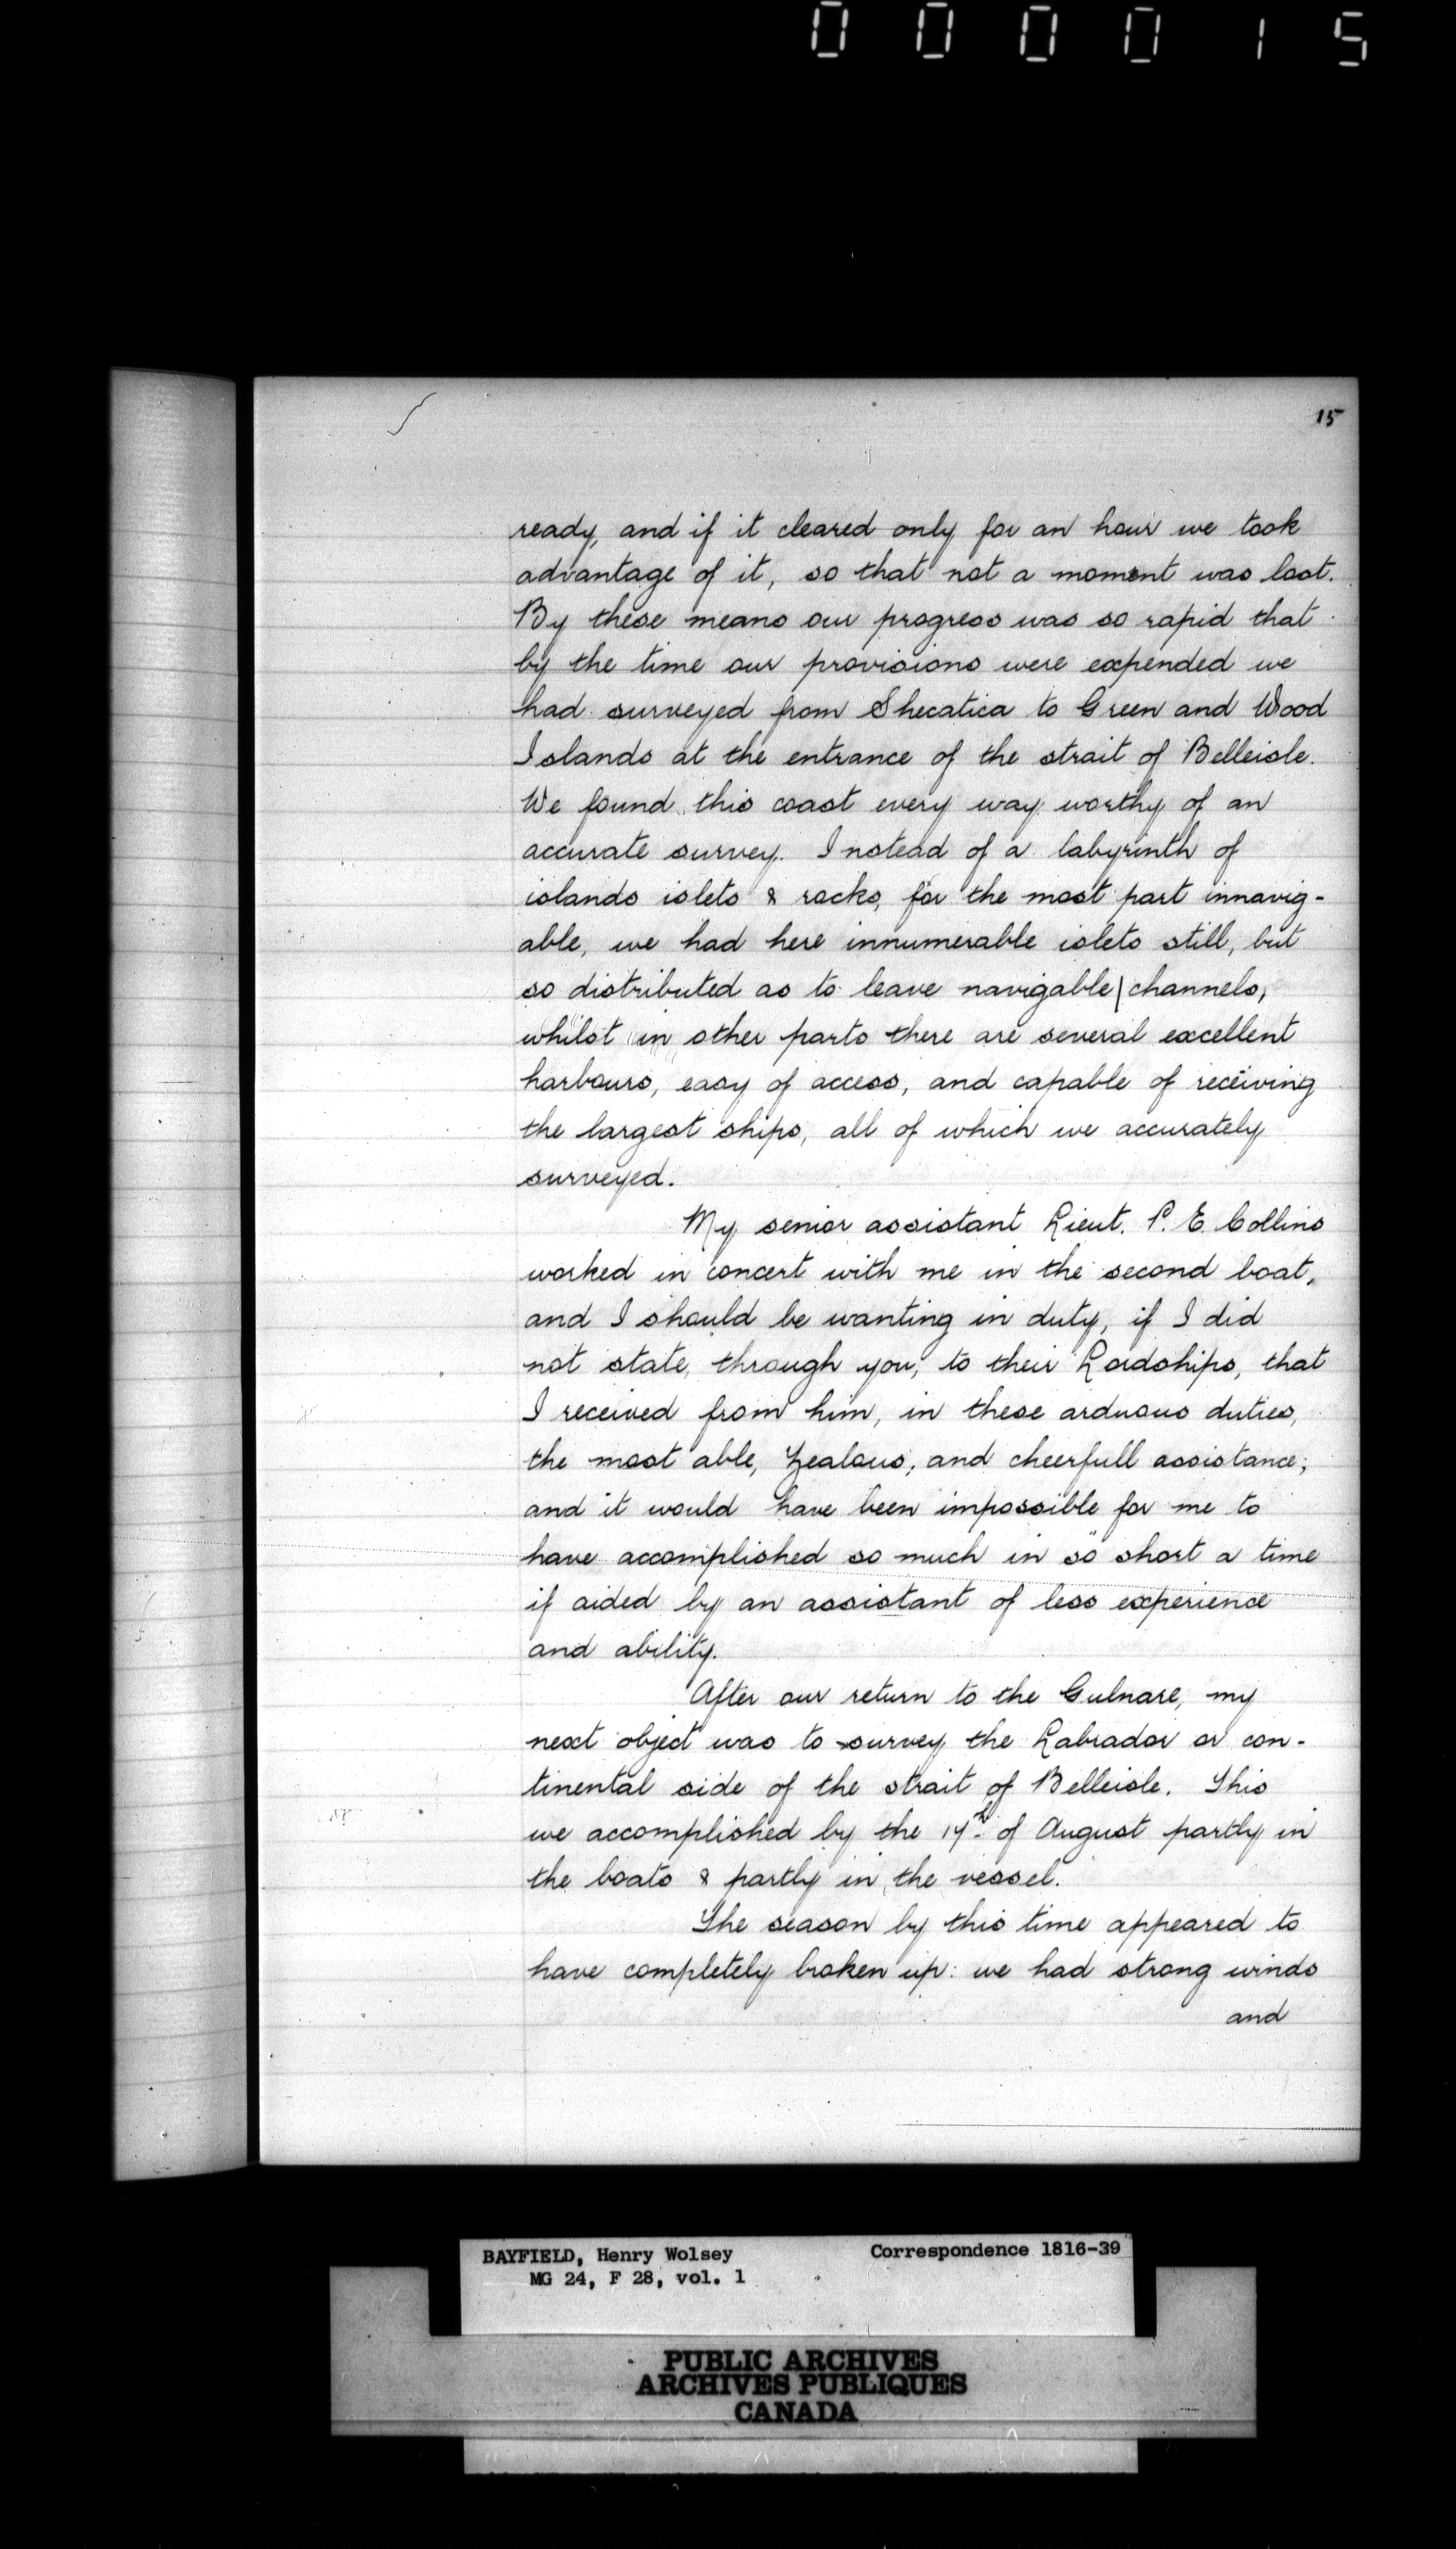 0 0 0 0 1 5
15
ready, and if it cleared only for an hour we took
advantage of it, so that not a moment was lost.
By these means our progress was so rapid that
by the time our provisions were expended we
had surveyed from Shecatica to Green and Wood
Islands at the entrance of the strait of Belleisle.
We found this coast every way worthy of an
accurate survey. Instead of a labyrinth of
islands islets & rocks, for the most part innavig-
able, we had here innumerable islets still, but
so distributed as to leave navigable channels,
whilst in other parts there are several excellent
harbours, easy of access, and capable of receiving
the largest ships, all of which we accurately
surveyed.
My senior assistant Lieut. P. E. Collins
worked in concert with me in the second boat,
and I should be wanting in duty, if I did
not state, through you, to their Lordships, that
I received from him, in these arduous duties,
the most able, zealous, and cheerfull assistance;
and it would have been impossible for me to
have accomplished so much in so short a time
if aided by an assistant of less experience
and ability.
After our return to the Gulnare, my
next object was to survey the Labrador or con-
tinental side of the strait of Belleisle. This
we accomplished by the of August partly in
the boats & partly in the vessel.
The season by this time appeared to
have completely broken up: we had strong winds
and
BAYFIELD, Henry Wolsey Correspondence 1816-39
MG 24, F 28, vol. 1
PUBLIC ARCHIVES
ARCHIVES PUBLIQUES
CANADA